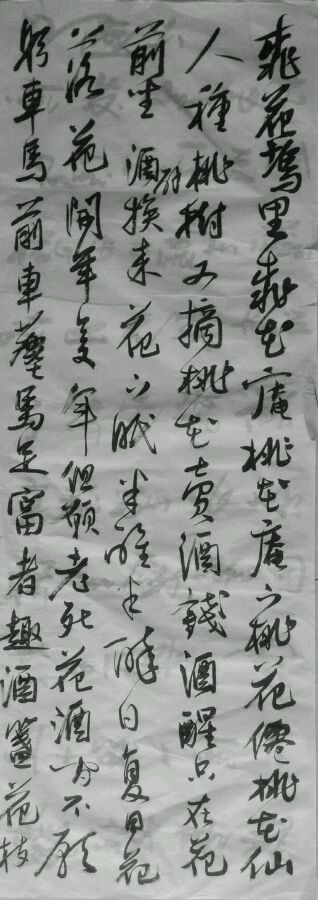 桃花塢里桃花庵桃花庵下桃花僊桃花仙
人種桃樹又摘桃花賣酒錢酒醒只在花
前坐酒醉換来花下眠半醒半醉日复日花
落花開年复年但願老死花酒間不願
躬車馬前車塵馬足富者趣酒盞花枝